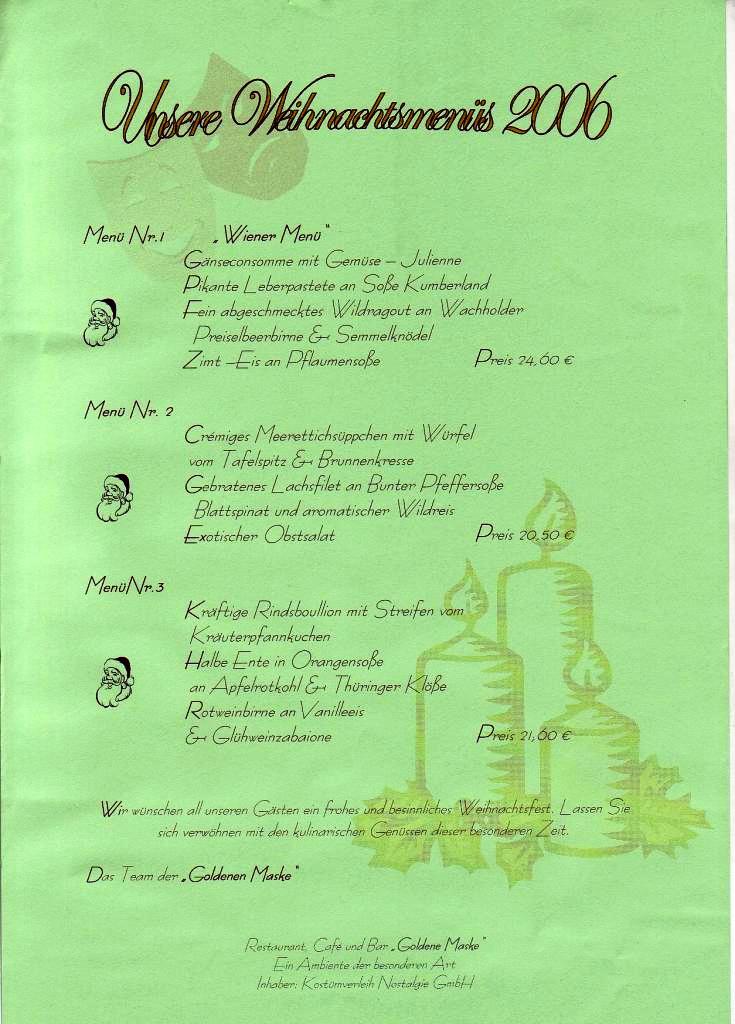 Unsere Weihnachtsmenüs 2006
Menü Nr.1 „Wiener Menü“
Gänseconsomme mit Gemüse – Julienne
Pikante Leberpastete an Soße Kumberland
Fein abgeschmecktes Wildragout an Wachholder
Preiselbeerbirne & Semmelknödel
Zimt –Eis an Pflaumensoße Preis 24,60 €
Menü Nr. 2
Crémiges Meerettichsüppchen mit Würfel
vom Tafelspitz & Brunnenkresse
Gebratenes Lachsfilet an Bunter Pfeffersoße
Blattspinat und aromatischer Wildreis
Exotischer Obstsalat Preis 20,50 €
MenüNr.3
Kräftige Rindsboullion mit Streifen vom
Kräuterpfannkuchen
Halbe Ente in Orangensoße
an Apfelrotkohl & Thüringer Klöße
Rotweinbirne an Vanilleeis
& Glühweinzabaione Preis 21,60 €
Wir wünschen all unseren Gästen ein frohes und besinnliches Weihnachtsfest. Lassen Sie
sich verwöhnen mit den kulinarischen Genüssen dieser besonderen Zeit.
Das Team der „Goldenen Maske“
Restaurant, Café und Bar „Goldene Maske“
Ein Ambiente der besonderen Art
Inhaber: Kostümverleih Nostalgie GmbH